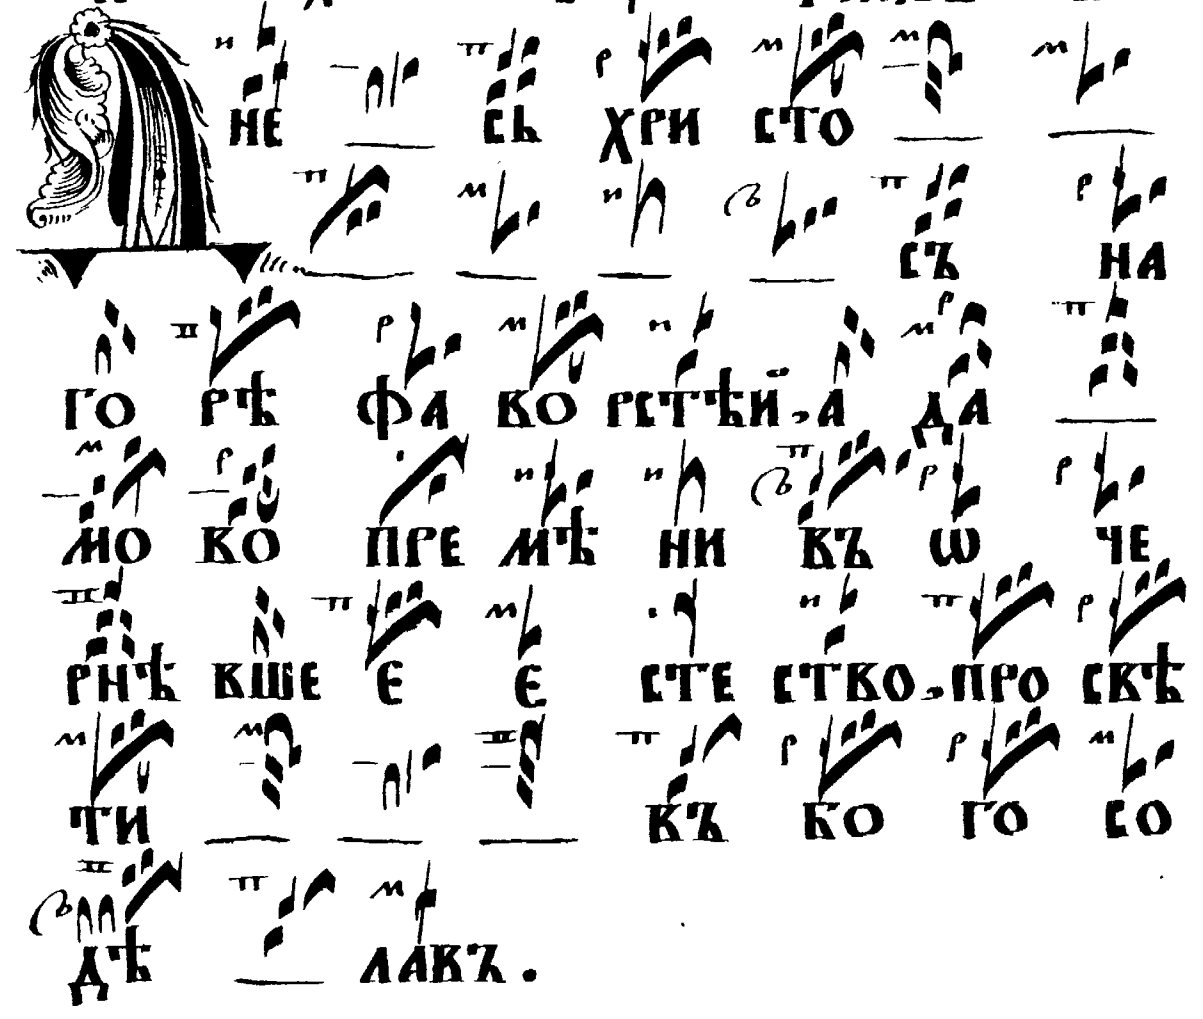 ДНЕСЬ ХРИСТО
СЪ НА
ГОРѢ ФАВОРСТѢЙ, АДА
МОВО ПРЕМѢНИВЪ ѠЧЕ
РНѢВШЕЕ ЕСТЕСТВО, ПРОСВѢ
ТИВЪ БОГОСО
ДѢЛАВЪ.